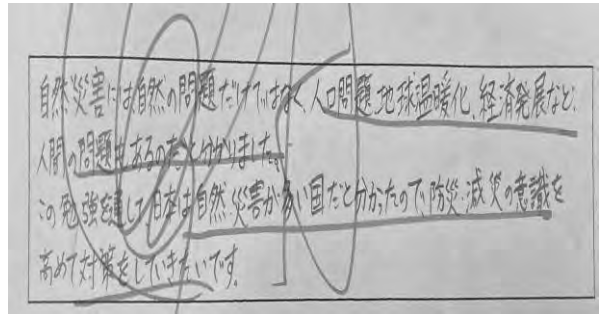 自然災害には自然の問題だけではなく、人口問題、地球温暖化、経済発展など、
人間の問題もあるのだと分かりました。
この勉強を通して日本は自然災害が多い国だと分かったので、防災、減災の意識を
高めて対策をしていきたいです。